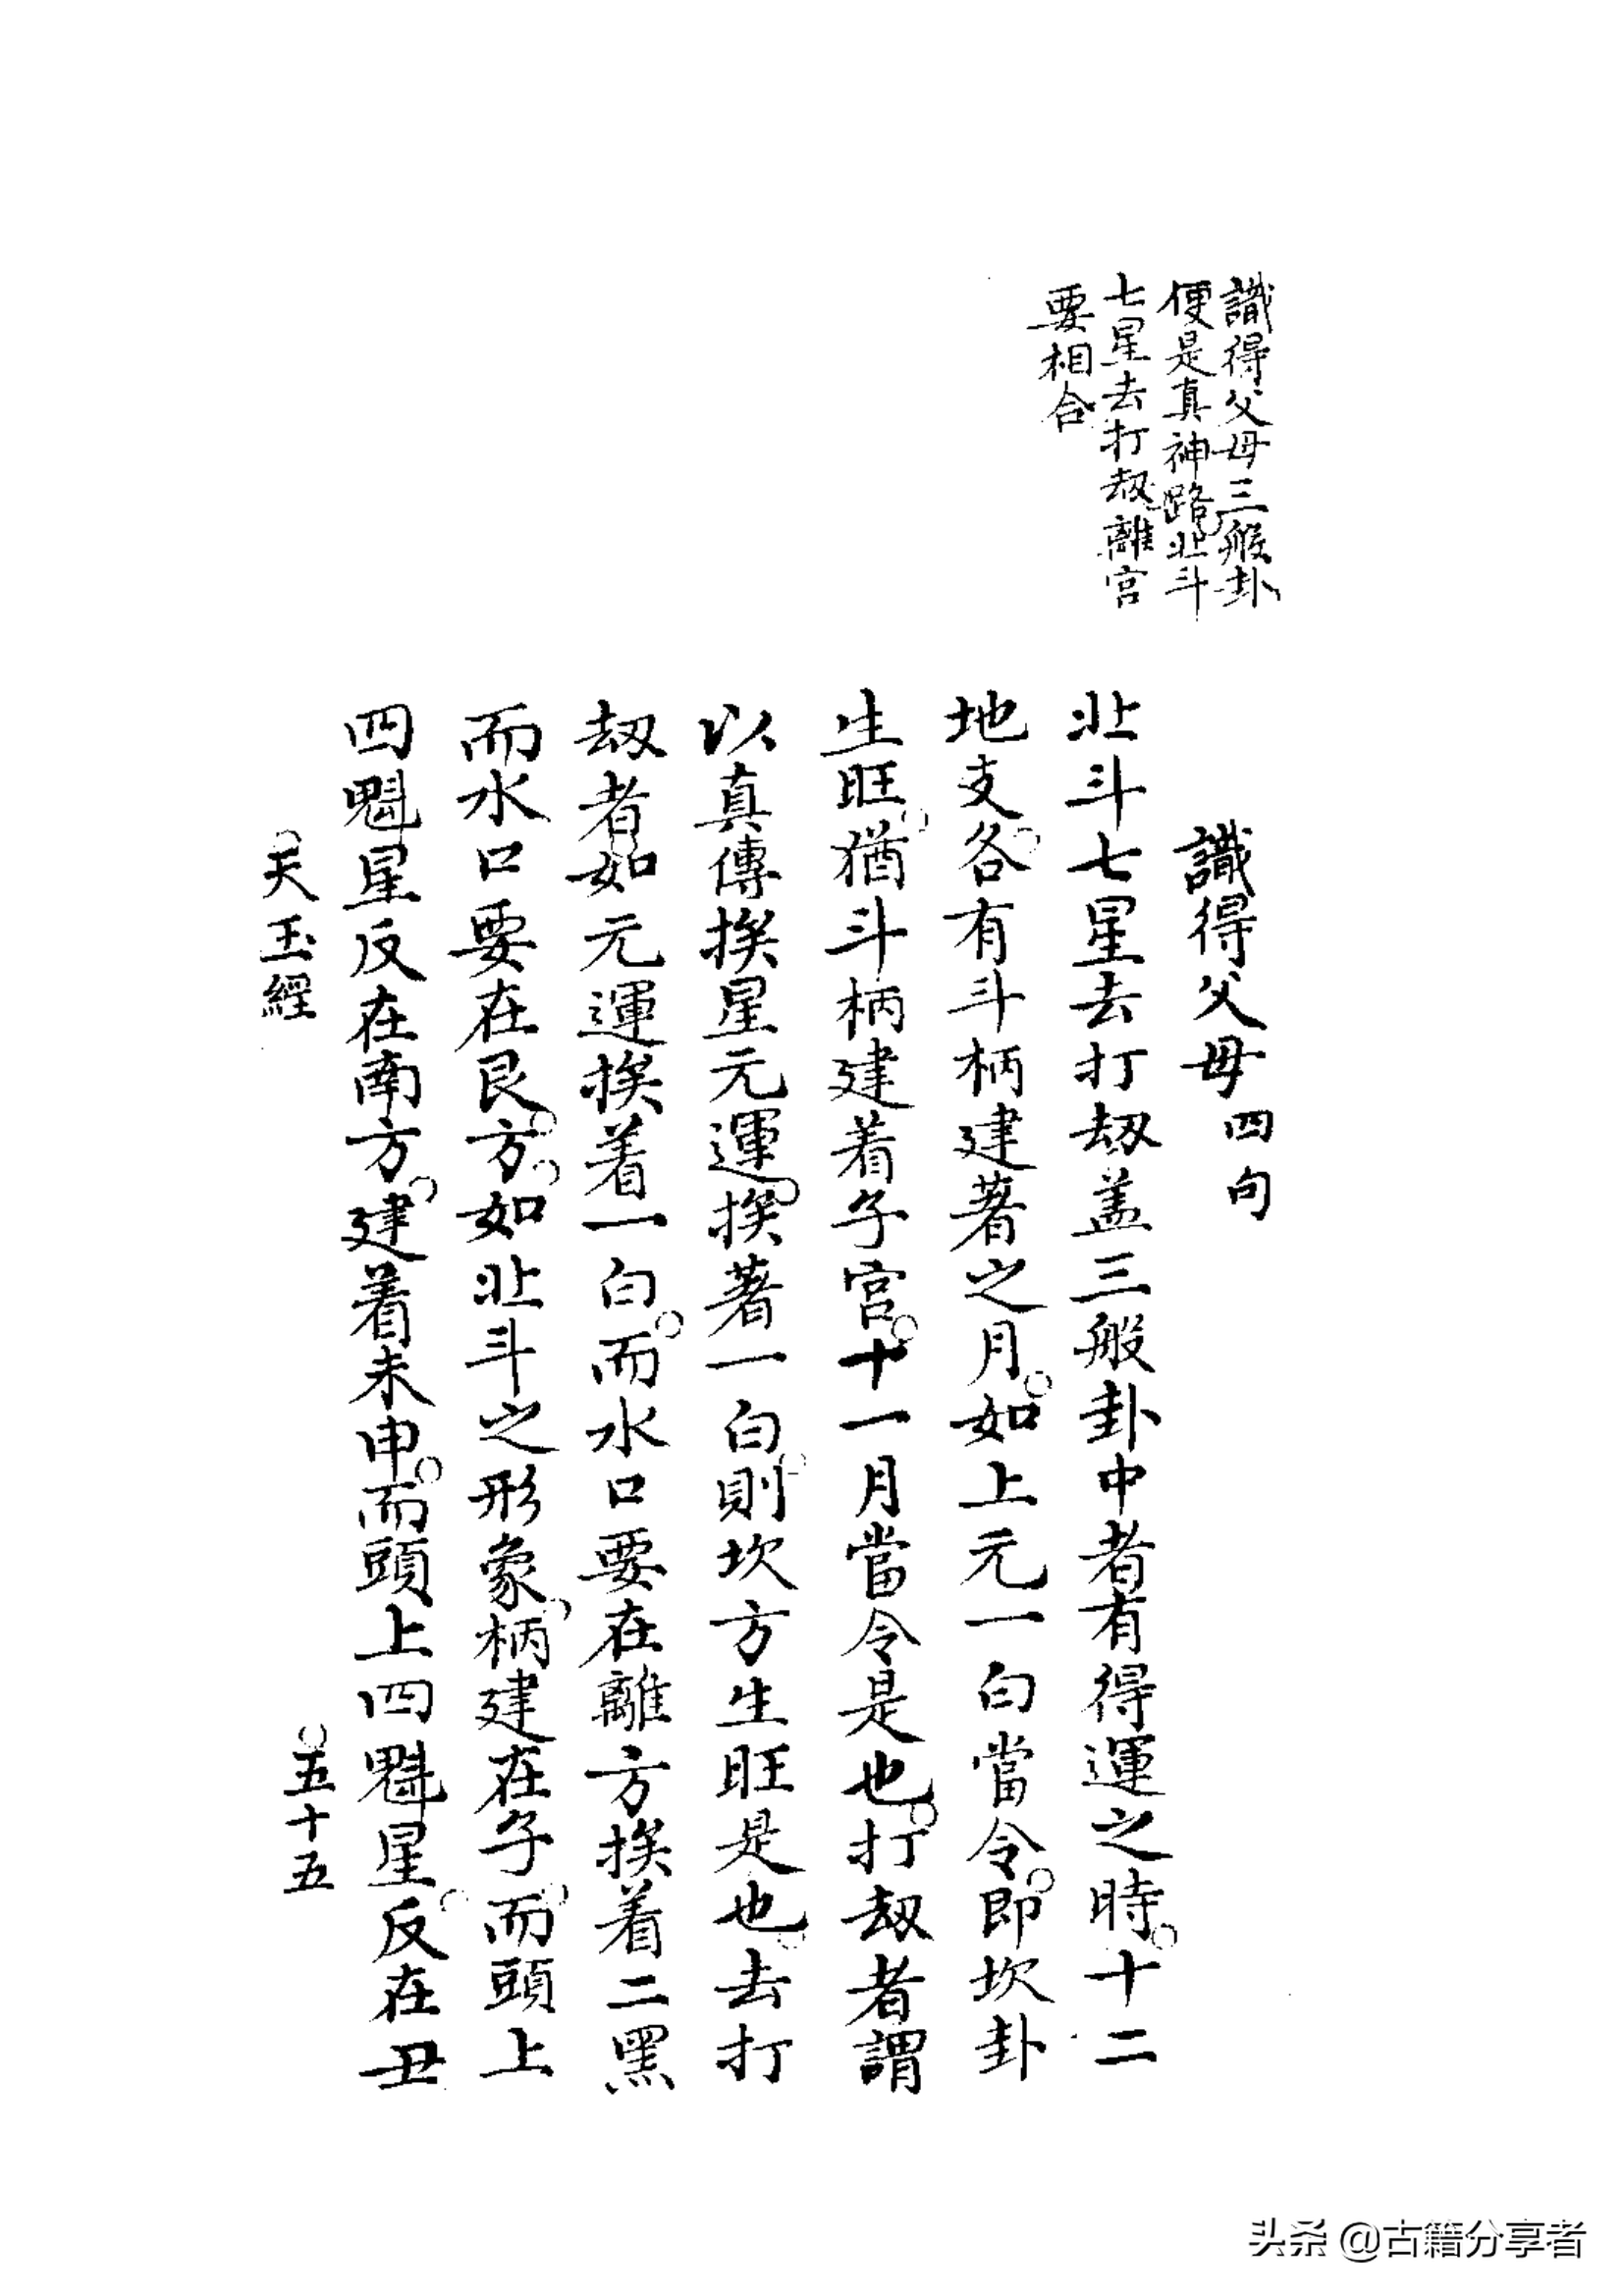 識得父母三般卦
便是真神路北斗
七星去打劫離宮
要相合
識得父母四句
北斗七星去打劫盖三般卦中者有得運之時十二
地支各有斗柄建著之月如上元一白當令即坎卦
生旺猶斗柄建着子宮十一月當令是也打劫者謂
以真傳挨星元運挨著一白則坎方生旺是也去打
劫者如元運挨着一白而水口要在離方挨着二黑
而水口要在艮方如北斗之形象柄建在子而頭上
四魁星反在南方建着未申而頭上四魁星反在丑
天玉經
五十五
头条 @古籍分享者